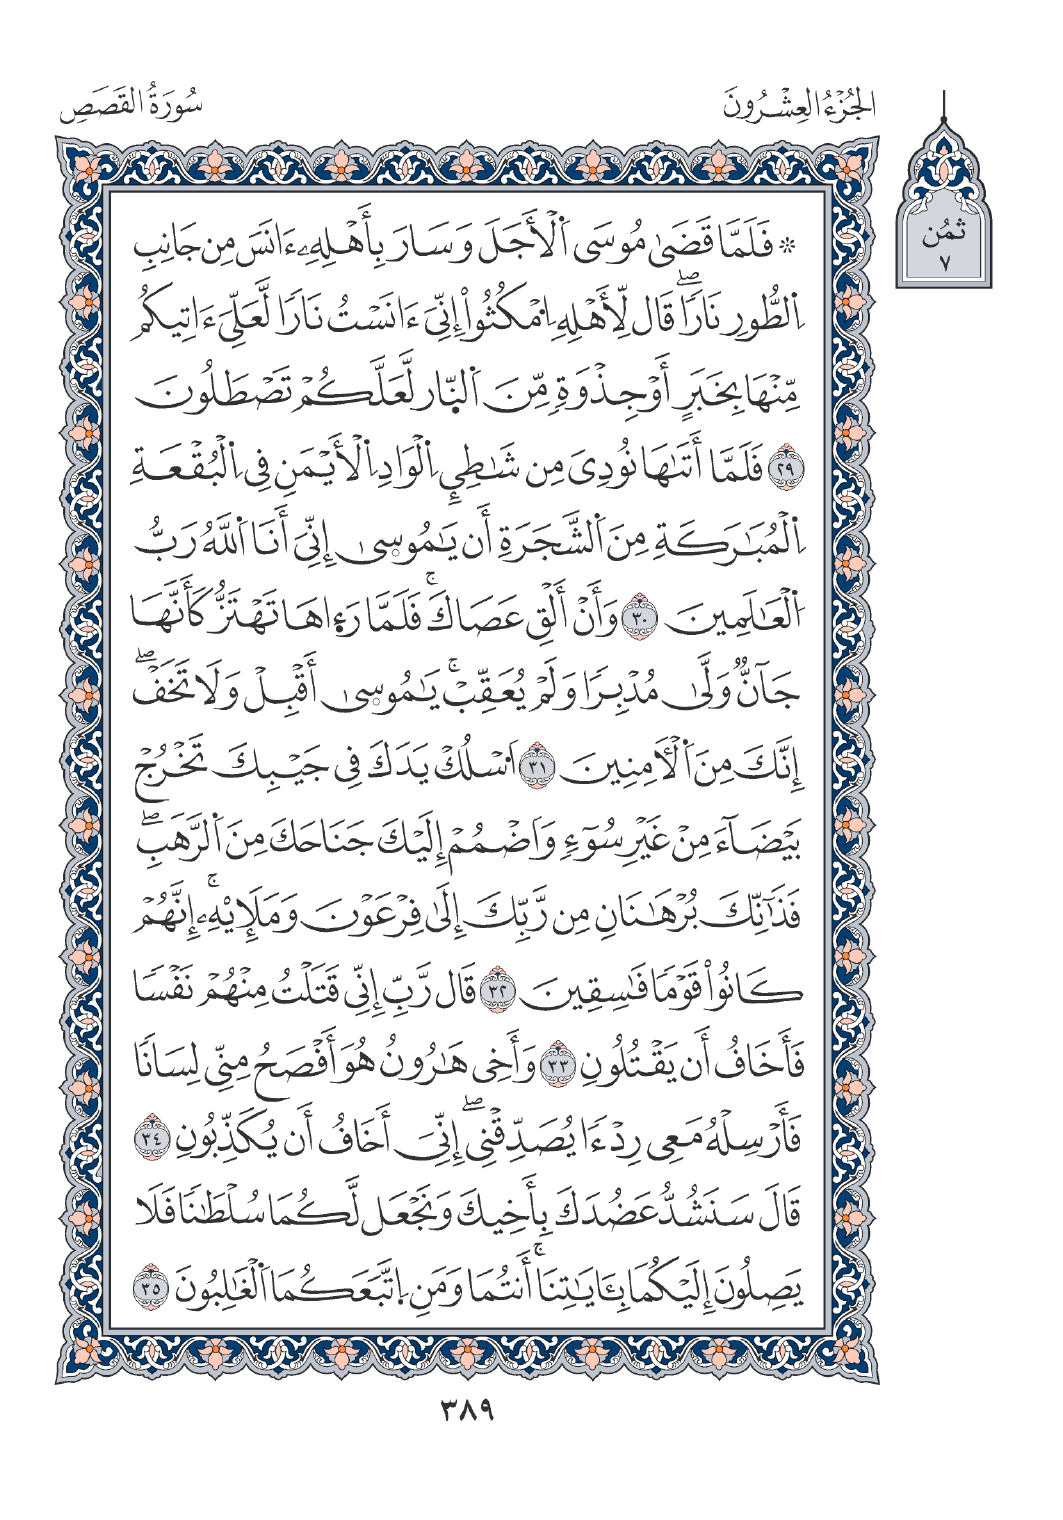 سُورَةُ القَصَصِ
الجُزْءُ العِشْرُونَ
ثُمُن
٧
۞ فَلَمَّا قَضَىٰ مُوسَى اَ۬لْأَجَلَ وَسَارَ بِأَهْلِهِۦٓ ءَانَسَ مِن جَانِبِ
اِ۬لطُّورِ نَارٗاۖ قَال لِّأَهْلِهِ اِ۟مْكُثُوٓاْ إِنِّيَ ءَانَسْتُ نَارٗا لَّعَلِّيَ ءَاتِيكُم
مِّنْهَا بِخَبَرٍ أَوْ جِذْوَةٖ مِّنَ اَ۬لنّ۪ارِ لَعَلَّكُمْ تَصْطَلُونَ
٢٩ فَلَمَّا أَتَىٰهَا نُودِىَ مِن شَٰطِيِٕ اِ۬لْوَادِ اِ۬لْأَيْمَنِ فِى اِ۬لْبُقْعَةِ
اِ۬لْمُبَٰرَكَةِ مِنَ اَ۬لشَّجَرَةِ أَن يَٰمُوس۪ىٰ إِنِّيَ أَنَا اَ۬للَّهُ رَبُّ
اُ۬لْعَٰلَمِينَ ٣٠ وَأَنْ أَلْقِ عَصَاكَۚ فَلَمَّا رَء۪اهَا تَهْتَزُّ كَأَنَّهَا
جَآنّٞ وَلَّىٰ مُدْبِرٗا وَلَمْ يُعَقِّبْۚ يَٰمُوس۪ىٰ أَقْبِلْ وَلَا تَخَفْۖ
إِنَّكَ مِنَ اَ۬لْأٓمِنِينَ ٣١ اَ۟سْلُكْ يَدَكَ فِى جَيْبِكَ تَخْرُجْ
بَيْضَآءَ مِنْ غَيْرِ سُوٓءٖ وَاَضْمُمْ إِلَيْكَ جَنَاحَكَ مِنَ اَ۬لرَّهَبِۖ
فَذَٰٓنِّكَ بُرْهَٰنَانِ مِن رَّبِّكَ إِلَىٰ فِرْعَوْنَ وَمَلَإِيْهِۦٓۚ إِنَّهُمْ
كَانُواْ قَوْمٗا فَٰسِقِينَ ٣٢ قَال رَّبِّ إِنِّى قَتَلْتُ مِنْهُمْ نَفْسٗا
فَأَخَافُ أَن يَقْتُلُونِ ٣٣ وَأَخِى هَٰرُونُ هُوَ أَفْصَحُ مِنِّى لِسَانٗا
فَأَرْسِلْهُ مَعِى رِدْءٗا يُصَدِّقْنِىۖ إِنِّيَ أَخَافُ أَن يُكَذِّبُونِ ٣٤
قَالَ سَنَشُدُّ عَضُدَكَ بِأَخِيكَ وَنَجْعَل لَّكُمَا سُلْطَٰنٗا فَلَا
يَصِلُونَ إِلَيْكُمَا بِـَٔايَٰتِنَاۚ أَنتُمَا وَمَنِ اِ۪تَّبَعَكُمَا اَ۬لْغَٰلِبُونَ ٣٥
٣٨٩